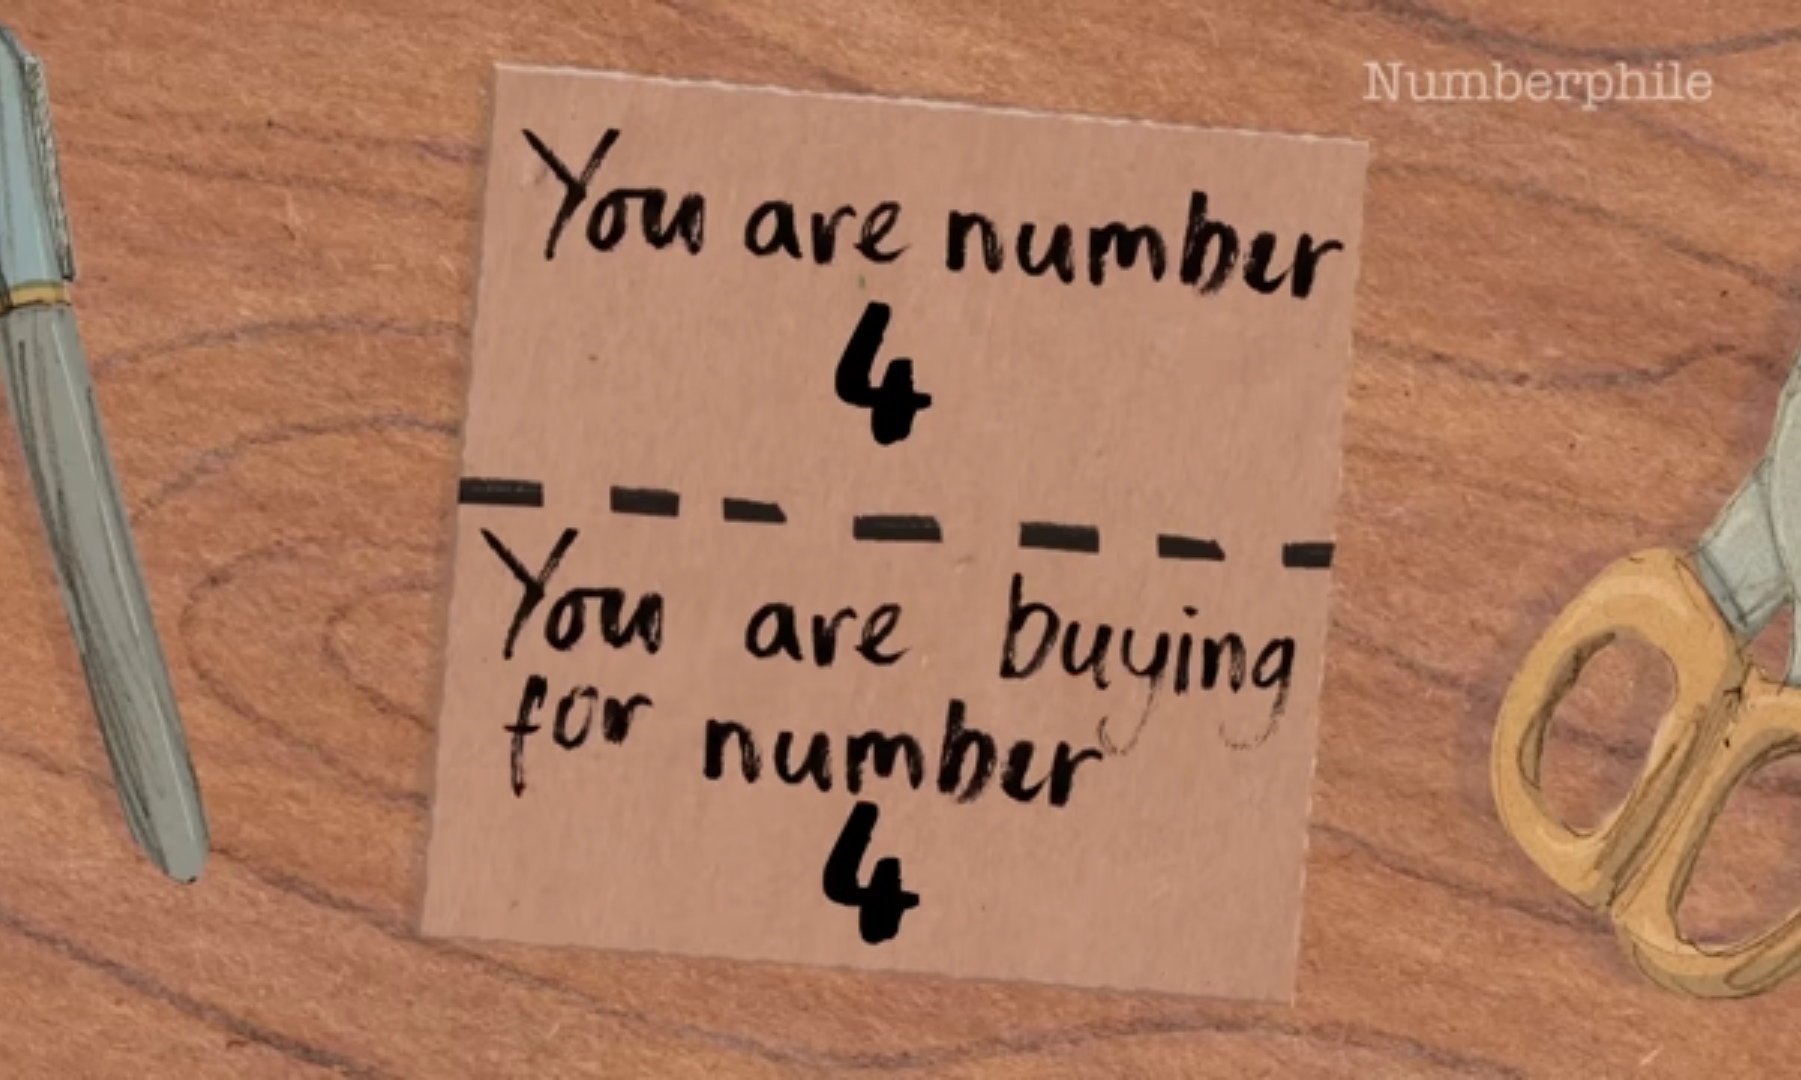 Numberphile
You are number
4
You are buying
for number
4